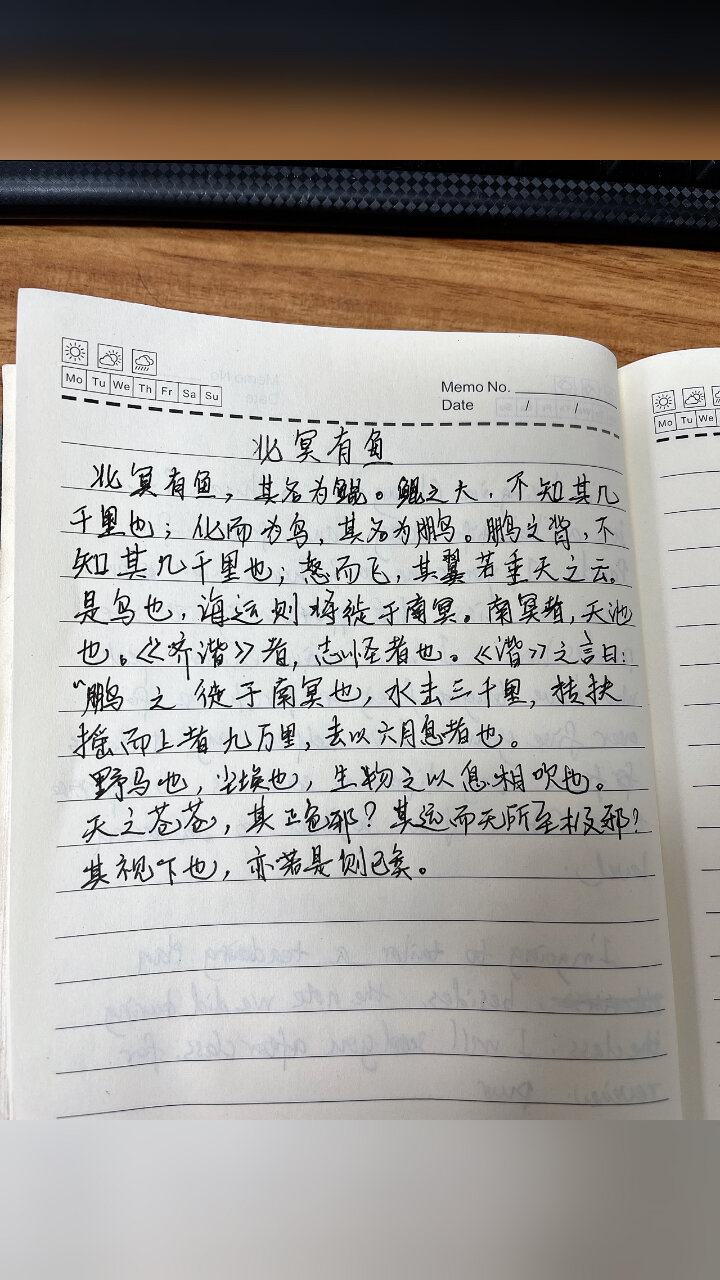 Mo Tu We Th Fr Sa Su
Memo No.
Date / /
Mo Tu We
北冥有鱼
北冥有鱼，其名为鲲。鲲之大，不知其几
千里也；化而为鸟，其名为鹏。鹏之背，不
知其几千里也；怒而飞，其翼若垂天之云。
是鸟也，海运则将徙于南冥。南冥者，天池
也。《齐谐》者，志怪者也。《谐》之言曰：
“鹏之徙于南冥也，水击三千里，抟扶
摇而上者九万里，去以六月息者也。
野马也，尘埃也，生物之以息相吹也。
天之苍苍，其正色邪？其远而无所至极邪？
其视下也，亦若是则已矣。
I'm going to tailor a teaching plan
besides, the note we did during
the class, I will send you after class for